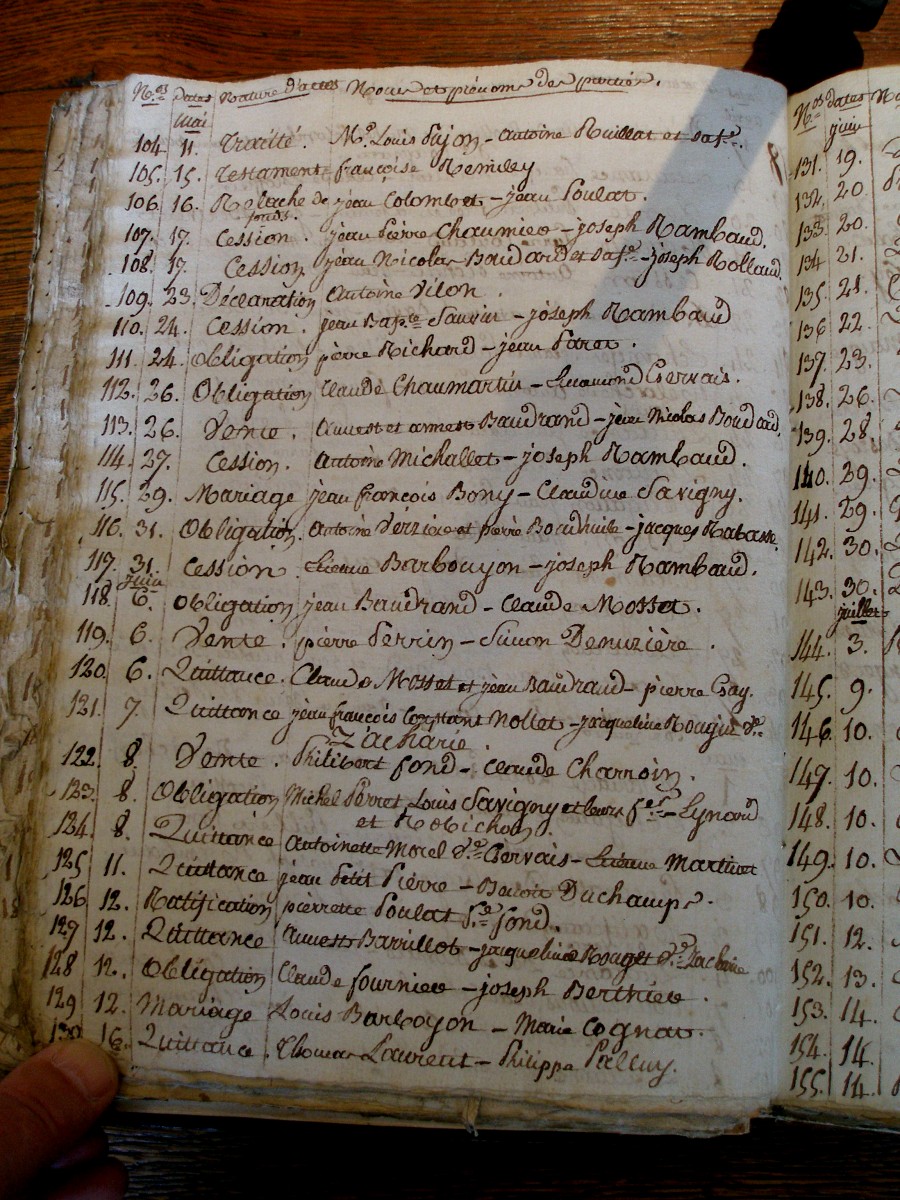 N.os dates Nature d'actes Noms et prénoms des parties.
Mai
104 11. Traité. M.e Louis Pujon - Antoine Ruillat et sa f.e.
105. 15. Testament françoise Remilly
106. 16. Relache de jean Colombet - jean Poulat.
fonds.
107. 17. Cession. jean Pierre Chaumier - joseph Rambaud.
108. 17. Cession jean Nicolas Boudard et sa f.e - joseph Rolland.
109. 23. Déclaration Antoine Vilon.
110. 24. Cession. jean Bap.te Sauriu - joseph Rambaud
111. 24. Obligation pierre Richard - jean Paret.
112. 26. Obligation Claude Chaumartin - Gervais.
113. 26. Vente. et Baudrand - jean Nicolas Boudard.
114. 27. Cession. Antoine Michallet - joseph Rambaud.
115. 29. Mariage jean françois Bony - Claudine Savigny.
116. 31. Obligation. Antoine Verzière et pierre - jacques Rabasse.
117. 31. Cession. Etienne Barbouyon - joseph Rambaud.
Juin
118. 6. Obligation jean Baudrand - Claude Mosset.
119. 6. Vente. pierre Perrin - Simon Denuzière.
120. 6. Quittance. Claude Mosset et jean Baudrand - pierre Gay.
121. 7. Quittance jean françois Constant Nollet - jacqueline Rouget v.e
Zacharie.
122. 8. Vente. Philibert fond - Claude Charroin.
123. 8. Obligation Michel Perret, Louis Savigny et leurs f.es - Lynard
et Robichon.
124. 8. Quittance Antoinette Morel v.e Gervais - Etienne Martinat
125 11. Quittance jean Petit Pierre - Benoit Duchamp.
126 12. Ratification pierrette Poulat f.e fond.
127 12. Quittance Barrillot - jacqueline Rouget v.e Zacharie
128 12. Obligation Claude fournier - joseph Berthier.
129 12. Mariage Louis Barboyon - Marie Cognat.
130 16. Quittance. Thomas Laurent - Philippe Palluy.
N.os dates
juin
131. 19.
132. 20.
133. 20.
134 21.
135. 21.
136 22.
137. 23.
138. 26.
139. 28.
140. 29.
141. 29.
142. 30.
143. 30.
juillet
144. 3.
145. 9.
146. 10.
147. 10.
148. 10.
149. 10.
150. 10.
151. 12.
152. 13.
153. 14.
154. 14.
155. 14.